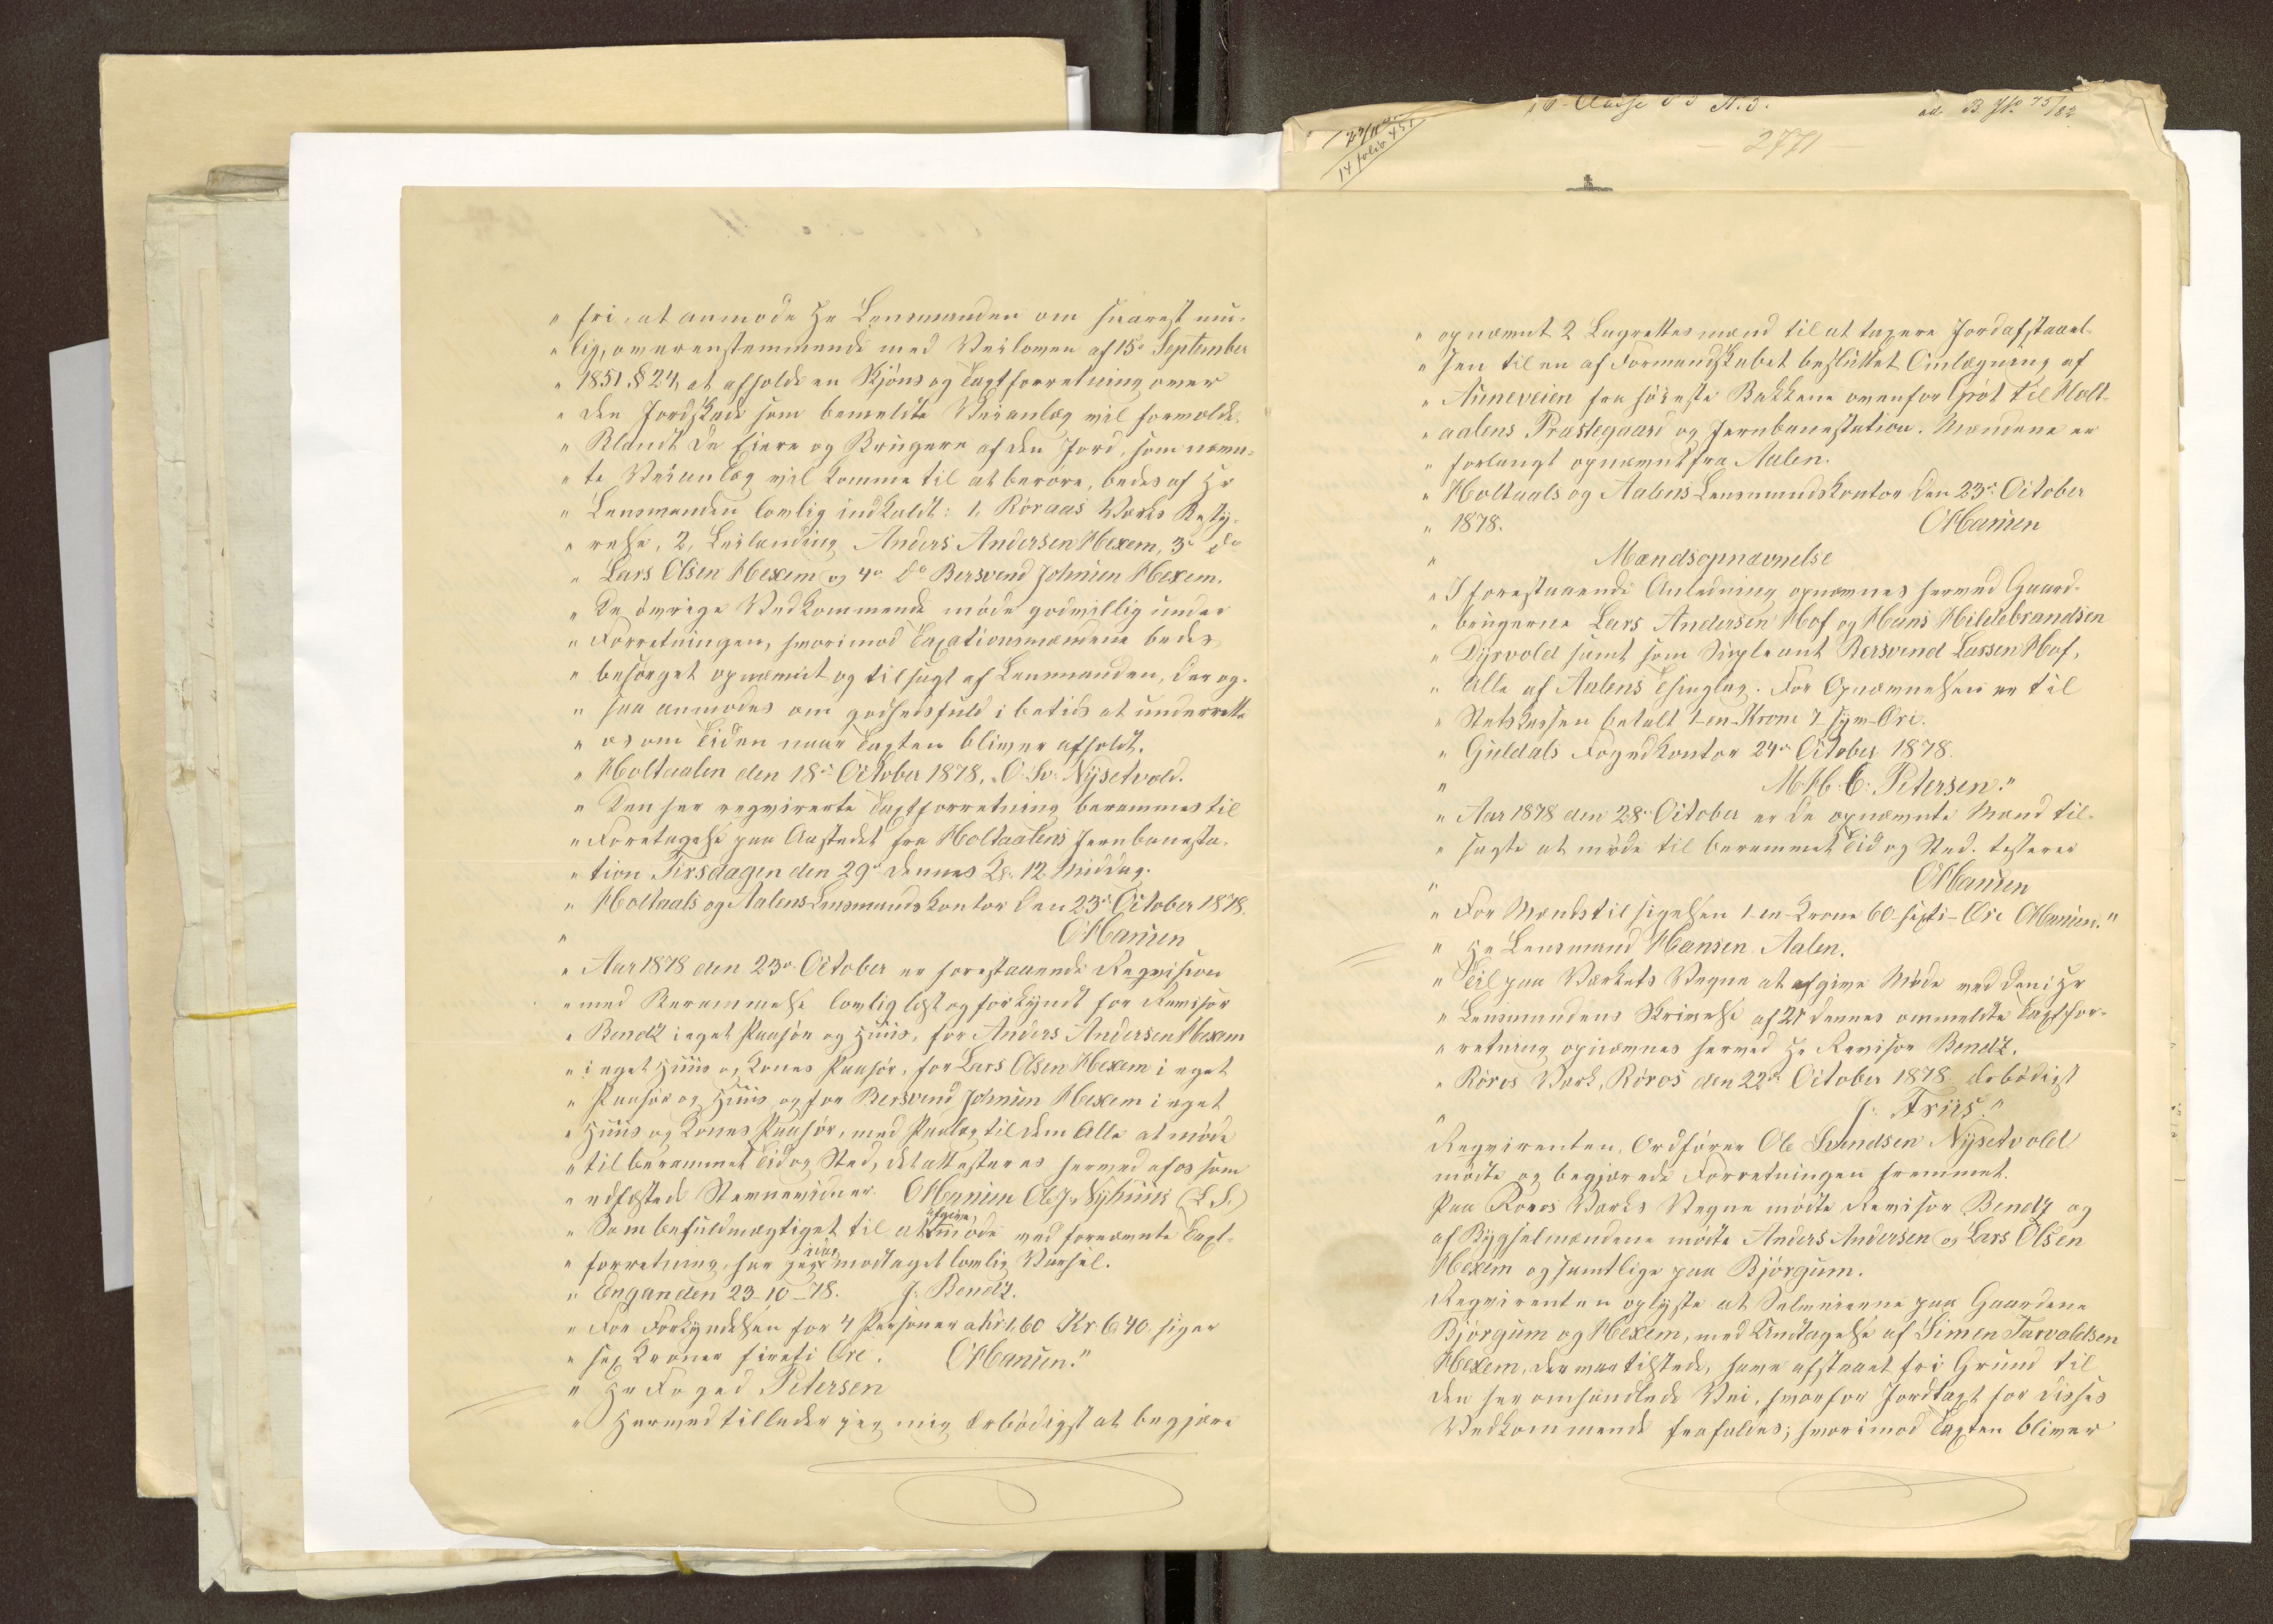 " fri, at anmode Hr Lensmanden om snarest mu-
" lig, overensstemmende med Veiloven af 15de September
" 1851 § 24, at afholde en Skjöns og Taxtforretning over
" den Jordskade som bemeldte Veianlæg vil forvolde.
" Blandt de Eiere og Brugere af den Jord, som nævn-
" te Veianlæg vil komme til at beröre, bedes af Hr
" Lensmanden lovlig indkaldt: 1, Röraas Værks Besty-
" relse, 2, Leilænding Anders Andersen Hexem, 3o do
" Lars Olsen Hexem og 4o do Bersvend Johnsen Hexem.
" De övrige Vedkommende möde godvillig under
" Forretningen, hvorimod Taxationsmændene bedes
" besörget opnævnt og tilsagt af Lensmanden, der og-
" saa anmodes om godhedsfuld i betids at underrette
" os om Tiden naar Taxten bliver afholdt.
" Holtaalen den 18de October 1878. O. Sv. Nysetvold.
" Den her reqvirerte Taxtforretning berammes til
" Foretagelse paa Aastedet fra Holtaalens Jernbanesta-
" tion Tirsdagen den 29de dennes Kl. 12 Middag.
" Holtaals og Aalens Lensmandskontor den 23de October 1878.
" OHansen
" Aar 1878 den 23de October er forestaaende Reqvisition
" med Berammelse lovlig læst og forkyndt for Revisor
" Bendz i eget Paahör og Huus, for Anders Andersen Hexem
" i eget Huus og Kones Paahör, for Lars Olsen Hexem i eget
" Paahör og Huus og for Bersvend Johnsen Hexem i eget
" Huus og Kones Paahör, med Paalæg til dem Alle at möde
" til berammet Tid og Sted, det attesteres herved af os som
" edfæstede Stevnevidner. OHansen Ole J. Nyhuus (L. S.)
" Som befuldmægtiget til at afgive möde ved fornævnte Taxt-
" forretning, har jeg idag modtaget lovlig Varsel.
" Engan den 23-10-78. J. Bendz.
" For Forkyndelsen for 4 Personer a Kr 1,60 Kr. 6,40 siger
" sex Kroner fireti Öre. OHansen."
" Hr Foged Petersen
" Herved tillader jeg mig ærbödigst at begjære
ad. B. No 75/82
2771
14 folio 451
" opnævnt 2 Lagrettesmænd til at taxere Jordafstaael-
" sen til en af Formandskabet besluttet Omlægning af
" Auneveien fra höieste Bakkene ovenfor Gröt til Holt-
" aalens Præstegaard og Jernbanestation. Mændene er
" forlangt opnævnt fra Aalen.
" Holtaals og Aalens Lensmandskontor den 23de October
" 1878. OHansen
" Mændsopnævnelse
" I forestaaende Anledning opnævnes herved Gaard-
" brugerne Lars Andersen Hof og Hans Hildebrandsen
" Dyrvold samt som Supleant Bersvend Larsen Hof,
" Alle af Aalens Thinglag. For Opnævnelsen er til
" Statskassen betalt 1-en-Krone 7-syv-Öre.
" Guldals Fogedkontor 24de October 1878.
" M. H. C. Petersen."
" Aar 1878 den 28de October er de opnævnte Mænd til-
" sagte at möde til berammet Tid og Sted. testerer
" OHansen
" For Mændstilsigelsen 1-en-Krone 60-sexti-Öre OHansen."
" Hr Lensmand Hansen Aalen.
" Til paa Værkets Vegne at afgive Möde ved den i Hr
" Lensmandens Skrivelse af 21 dennes ommeldte Taxtfor-
" retning opnævnes herved Hr Revisor Bendz.
" Röros Værk, Röros den 22de October 1878 Ærbödigst
" J. Friis."
Reqvirenten, Ordförer Ole Svendsen Nysetvold
mödte og begjærede Forretningen fremmet.
Paa Röros Værks Vegne mödte Revisor Bendz og
af Bygselmændene mödte Anders Andersen og Lars Olsen
Hexem og samtlige paa Björgum.
Reqvirenten oplyste at Selveierne paa Gaardene
Björgum og Hexem, med Undtagelse af Simen Tarvaldsen
Hexem, der var tilstede, have afstaaet fri Grund til
den her omhandlede Vei, hvorfor Jordtaxt for disses
Vedkommende frafaldes; hvorimod Taxten bliver